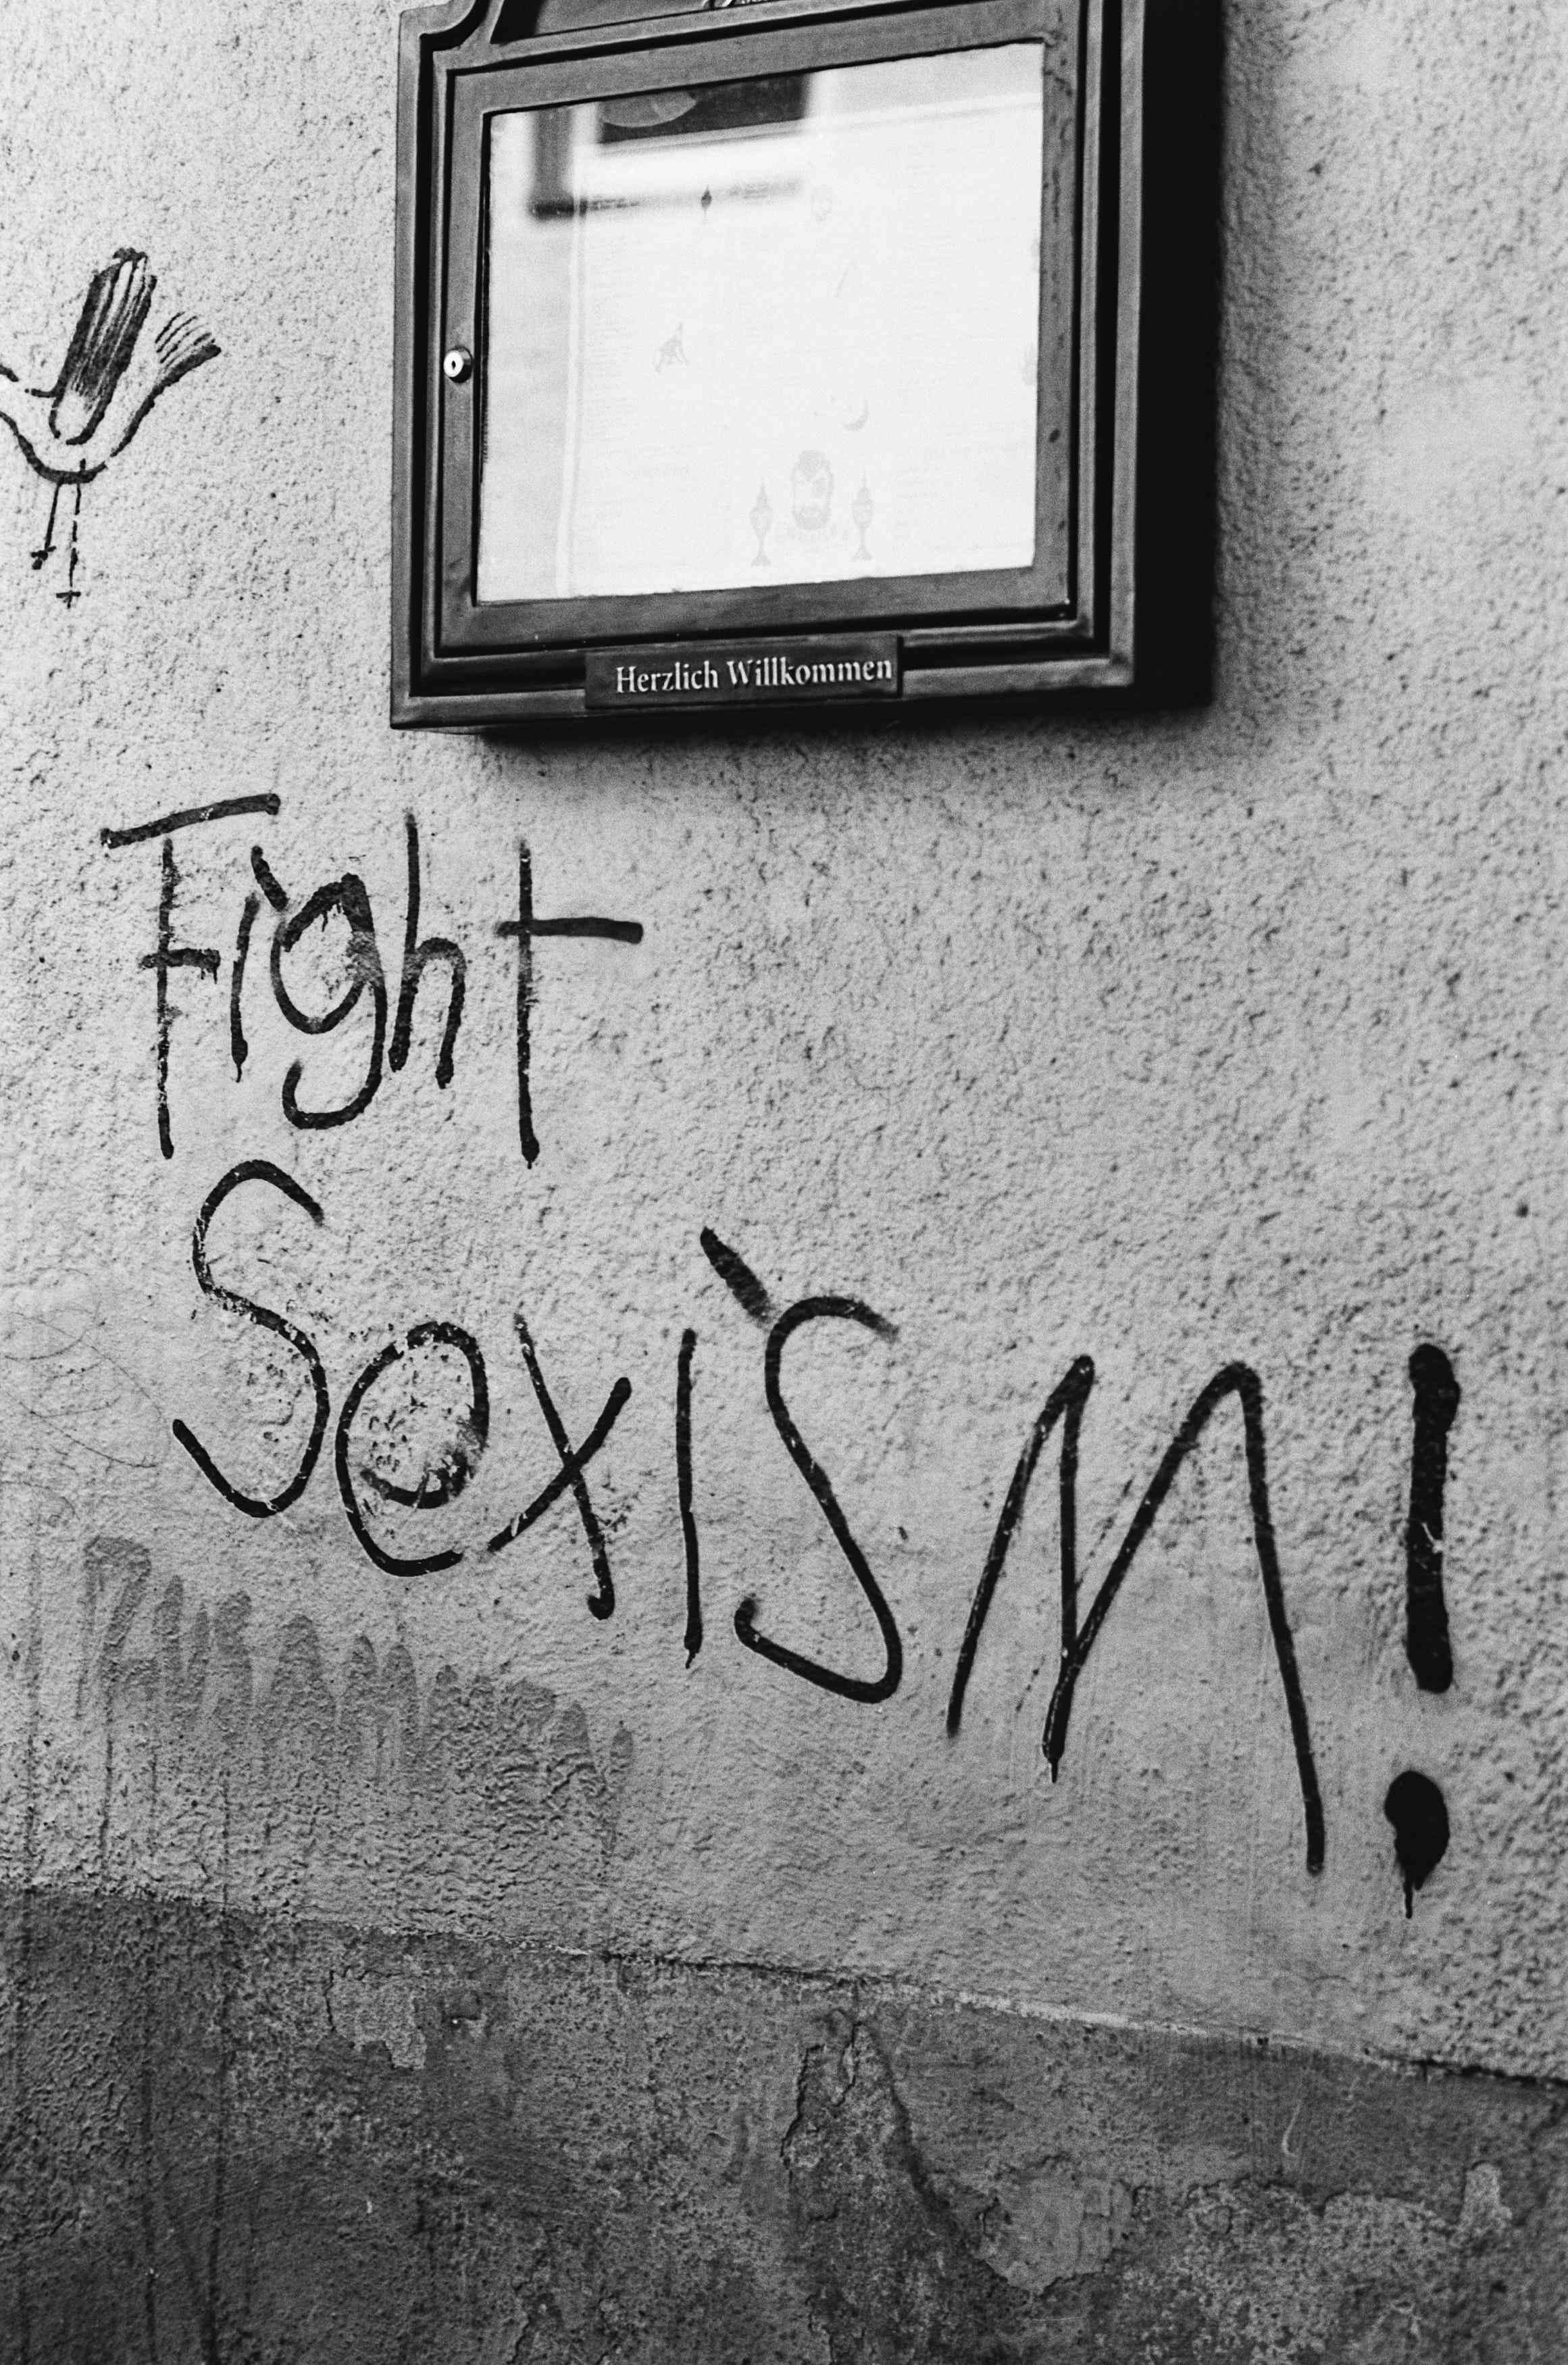 Herzlich Willkommen
Fight
SexisM!